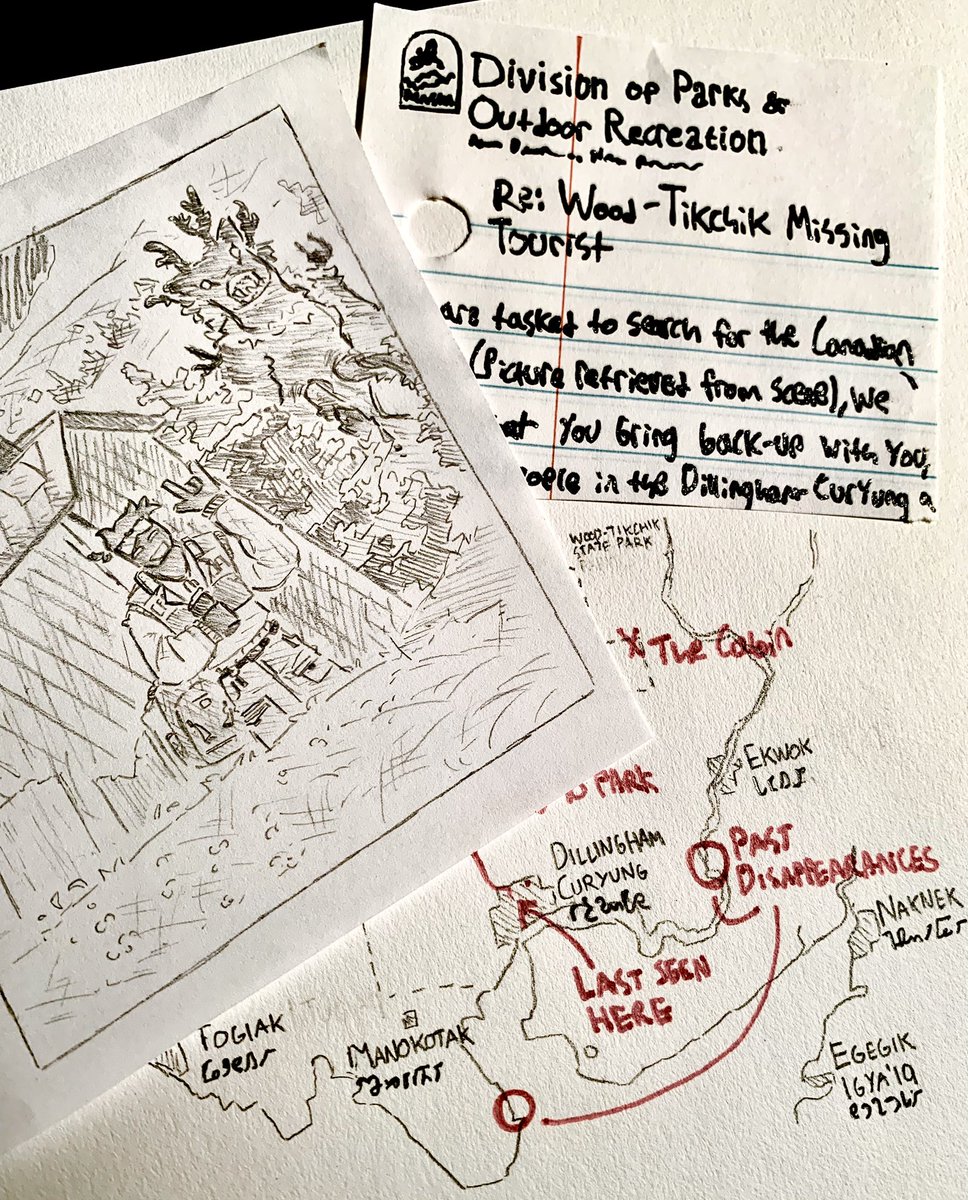 Division of Parks &
Outdoor Recreation
Re: Wood-Tikchik Missing
Tourist
are tasked to search for the Canadian
(Picture retrieved from scene), we
you bring back-up with you,
in the Dillingham Curyung
WOOD-TIKCHIK
STATE PARK
X THE CABIN
EKWOK
PARK
DILLINGHAM
CURYUNG
PAST
DISAPPEARANCES
NAKNEK
LAST SEEN
HERE
TOGIAK
MANOKOTAK
EGEGIK
IGYA'IQ